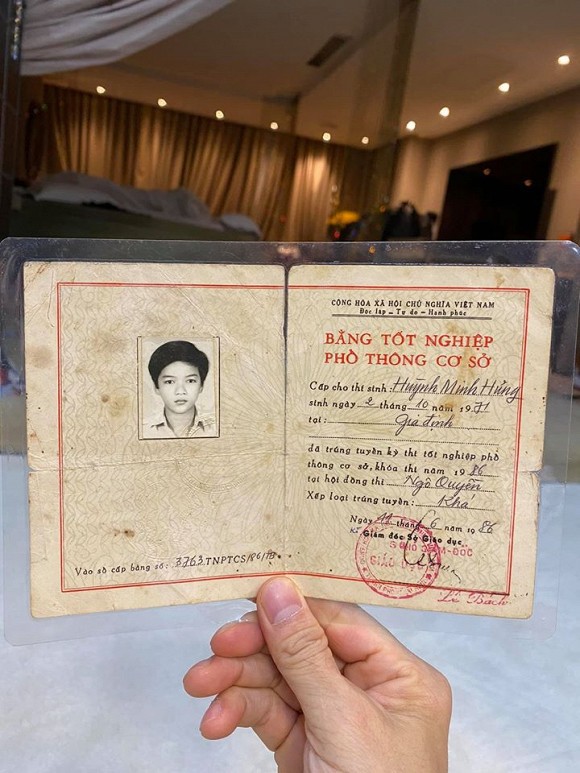 CỘNG HÒA XÃ HỘI CHỦ NGHĨA VIỆT NAM
Độc lập - Tự do - Hạnh phúc
BẰNG TỐT NGHIỆP
PHỔ THÔNG CƠ SỞ
Cấp cho thí sinh: Huỳnh Minh Hưng
sinh ngày 2 tháng 10 năm 1971
tại: Gia định
đã trúng tuyển kỳ thi tốt nghiệp phổ
thông cơ sở, khóa thi năm 1986
tại hội đồng thi Ngô Quyền
Xếp loại trúng tuyển: Khá
Ngày 11 tháng 6 năm 1986
Giám đốc Sở Giáo dục
GIÁO DỤC
Lê Bách
Vào sổ cấp bằng số: 3763.TNPTCS/86/TB